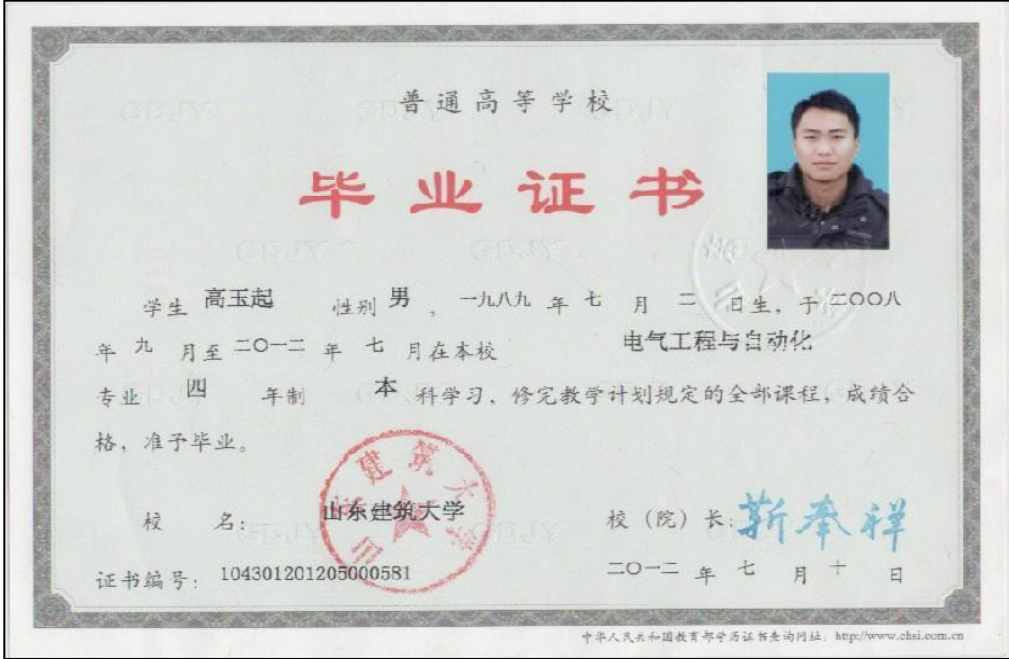 普通高等学校
毕业证书
学生 高玉起 性别 男 , 一九八九 年 七 月 二 日生, 于 二〇〇八
年 九 月至 二〇一二 年 七 月在本校 电气工程与自动化
专业 四 年制 本 科学习, 修完教学计划规定的全部课程, 成绩合
格, 准予毕业。
山东建筑大学
校 名: 山东建筑大学 校(院)长: 靳奉祥
证书编号: 104301201205000581 二〇一二 年 七 月 十 日
中华人民共和国教育部学历证书查询网址: http://www.chsi.com.cn